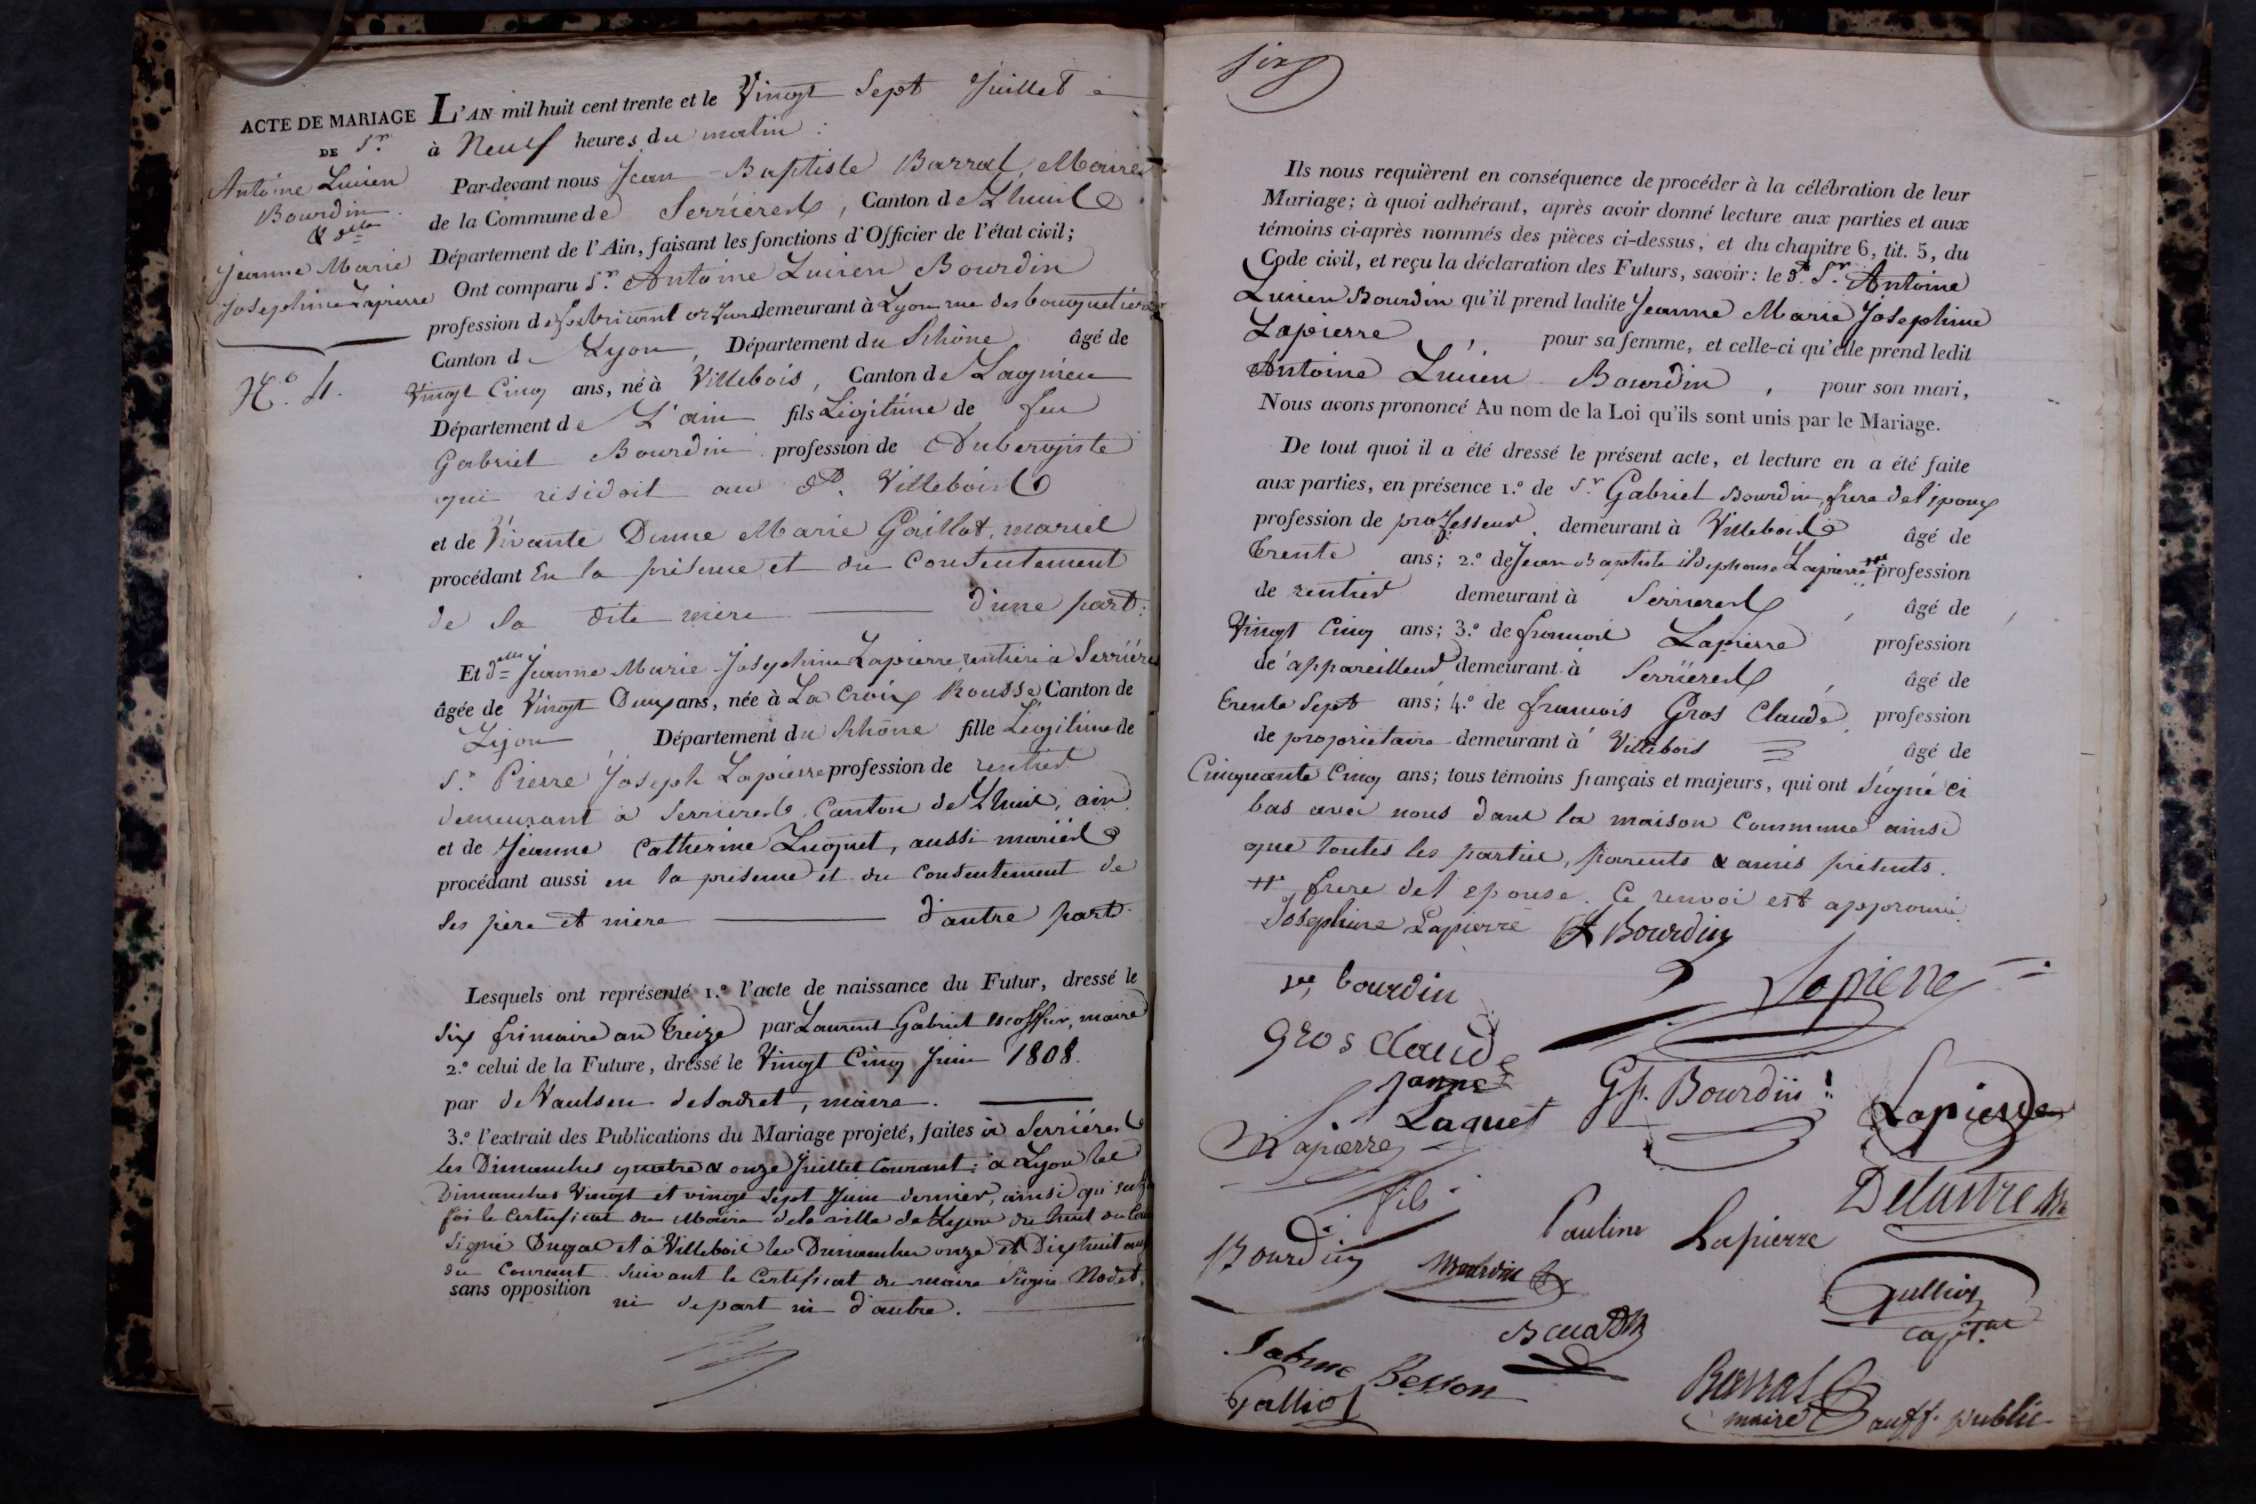 ACTE DE MARIAGE
DE Sr.
Antoine Lucien
Bourdin
& delle
Jeanne Marie
Josephine Lapierre
N.o 4.
L'AN mil huit cent trente et le Vingt Sept Juillet à
à Neuf heures du matin :
Par-devant nous Jean Baptiste Barral, Maire
de la Commune de Serrieres, Canton de Lhuis
Département de l'Ain, faisant les fonctions d'Officier de l'état civil;
Ont comparu Sr. Antoine Lucien Bourdin
profession de fabricant demeurant à Lyon rue des bouquetieres
Canton de Lyon, Département du Rhône âgé de
Vingt Cinq ans, né à Villebois, Canton de Lagnieu
Département de L'ain fils Légitime de feu
Gabriel Bourdin profession de Aubergiste
qui residoit au dt. Villebois
et de Vivante Dame Marie Gaillot, mariés
procédant En la présence et du Consentement
de la dite mère d'une part :
Et delle Jeanne Marie Josephine Lapierre rentiere a Serrières
âgée de Vingt Deux ans, née à La Croix Rousse Canton de
Lyon, Département du Rhône fille Légitime de
Sr. Pierre Joseph Lapierre profession de rentier
demeurant à Serrieres Canton de Lhuis, ain
et de Jeanne Catherine Luquet, aussi mariés
procédant aussi en la présence et du Consentement de
ses père et mère d'autre part.
Lesquels ont représenté 1.o l'acte de naissance du Futur, dressé le
six frimaire an treize par Laurent Gabriel Escoffier, maire
2.o celui de la Future, dressé le Vingt Cinq Juin 1808.
par de, maire.
3.o l'extrait des Publications du Mariage projeté, faites à Serrières
les Dimanches quatre & onze Juillet Courant ; à Lyon les
Dimanches Vingt et vingt sept Juin dernier, ainsi qu'en fait
foi le Certificat du Maire de la ville de Lyon du huit du Cour
signé et à Villebois les Dimanches onze et Dix huit aussi
du Courant suivant le Certificat du maire Signé Nodet,
sans opposition ni de part ni d'autre.
six
Ils nous requièrent en conséquence de procéder à la célébration de leur
Mariage; à quoi adhérant, après avoir donné lecture aux parties et aux
témoins ci-après nommés des pièces ci-dessus, et du chapitre 6, tit. 5, du
Code civil, et reçu la déclaration des Futurs, savoir : le dt. Sr. Antoine
Lucien Bourdin qu'il prend ladite Jeanne Marie Josephine
Lapierre, pour sa femme, et celle-ci qu'elle prend ledit
Antoine Lucien Bourdin, pour son mari,
Nous avons prononcé Au nom de la Loi qu'ils sont unis par le Mariage.
De tout quoi il a été dressé le présent acte, et lecture en a été faite
aux parties, en présence 1.o de Sr. Gabriel Bourdin, frere de l'epoux
profession de professeur demeurant à Villebois âgé de
trente ans; 2.o de Jean Baptiste ildephonse Lapierre profession
de rentier demeurant à Serrieres, âgé de
Vingt Cinq ans; 3.o de francois Lapierre profession
de appareilleur demeurant à Serrieres, âgé de
trente sept ans; 4.o de francois Gros Claude profession
de proprietaire demeurant à Villebois âgé de
Cinquante Cinq ans; tous témoins français et majeurs, qui ont Signé ci
bas avec nous dans la maison Commune ainsi
que toutes les parties, parents & amis présents.
frere de l'epouse. Ce renvoi est approuvé
Josephine Lapierre Bourdin
ve bourdin
Lapierre
Gros Claude
Janne
Laquet
G F. Bourdin
Lapierre
Lapierre
fils
Delastre
Pauline Lapierre
Bourdin
Galliot
Capit.ne
Besson
Galliot
Barral
maire
off. public